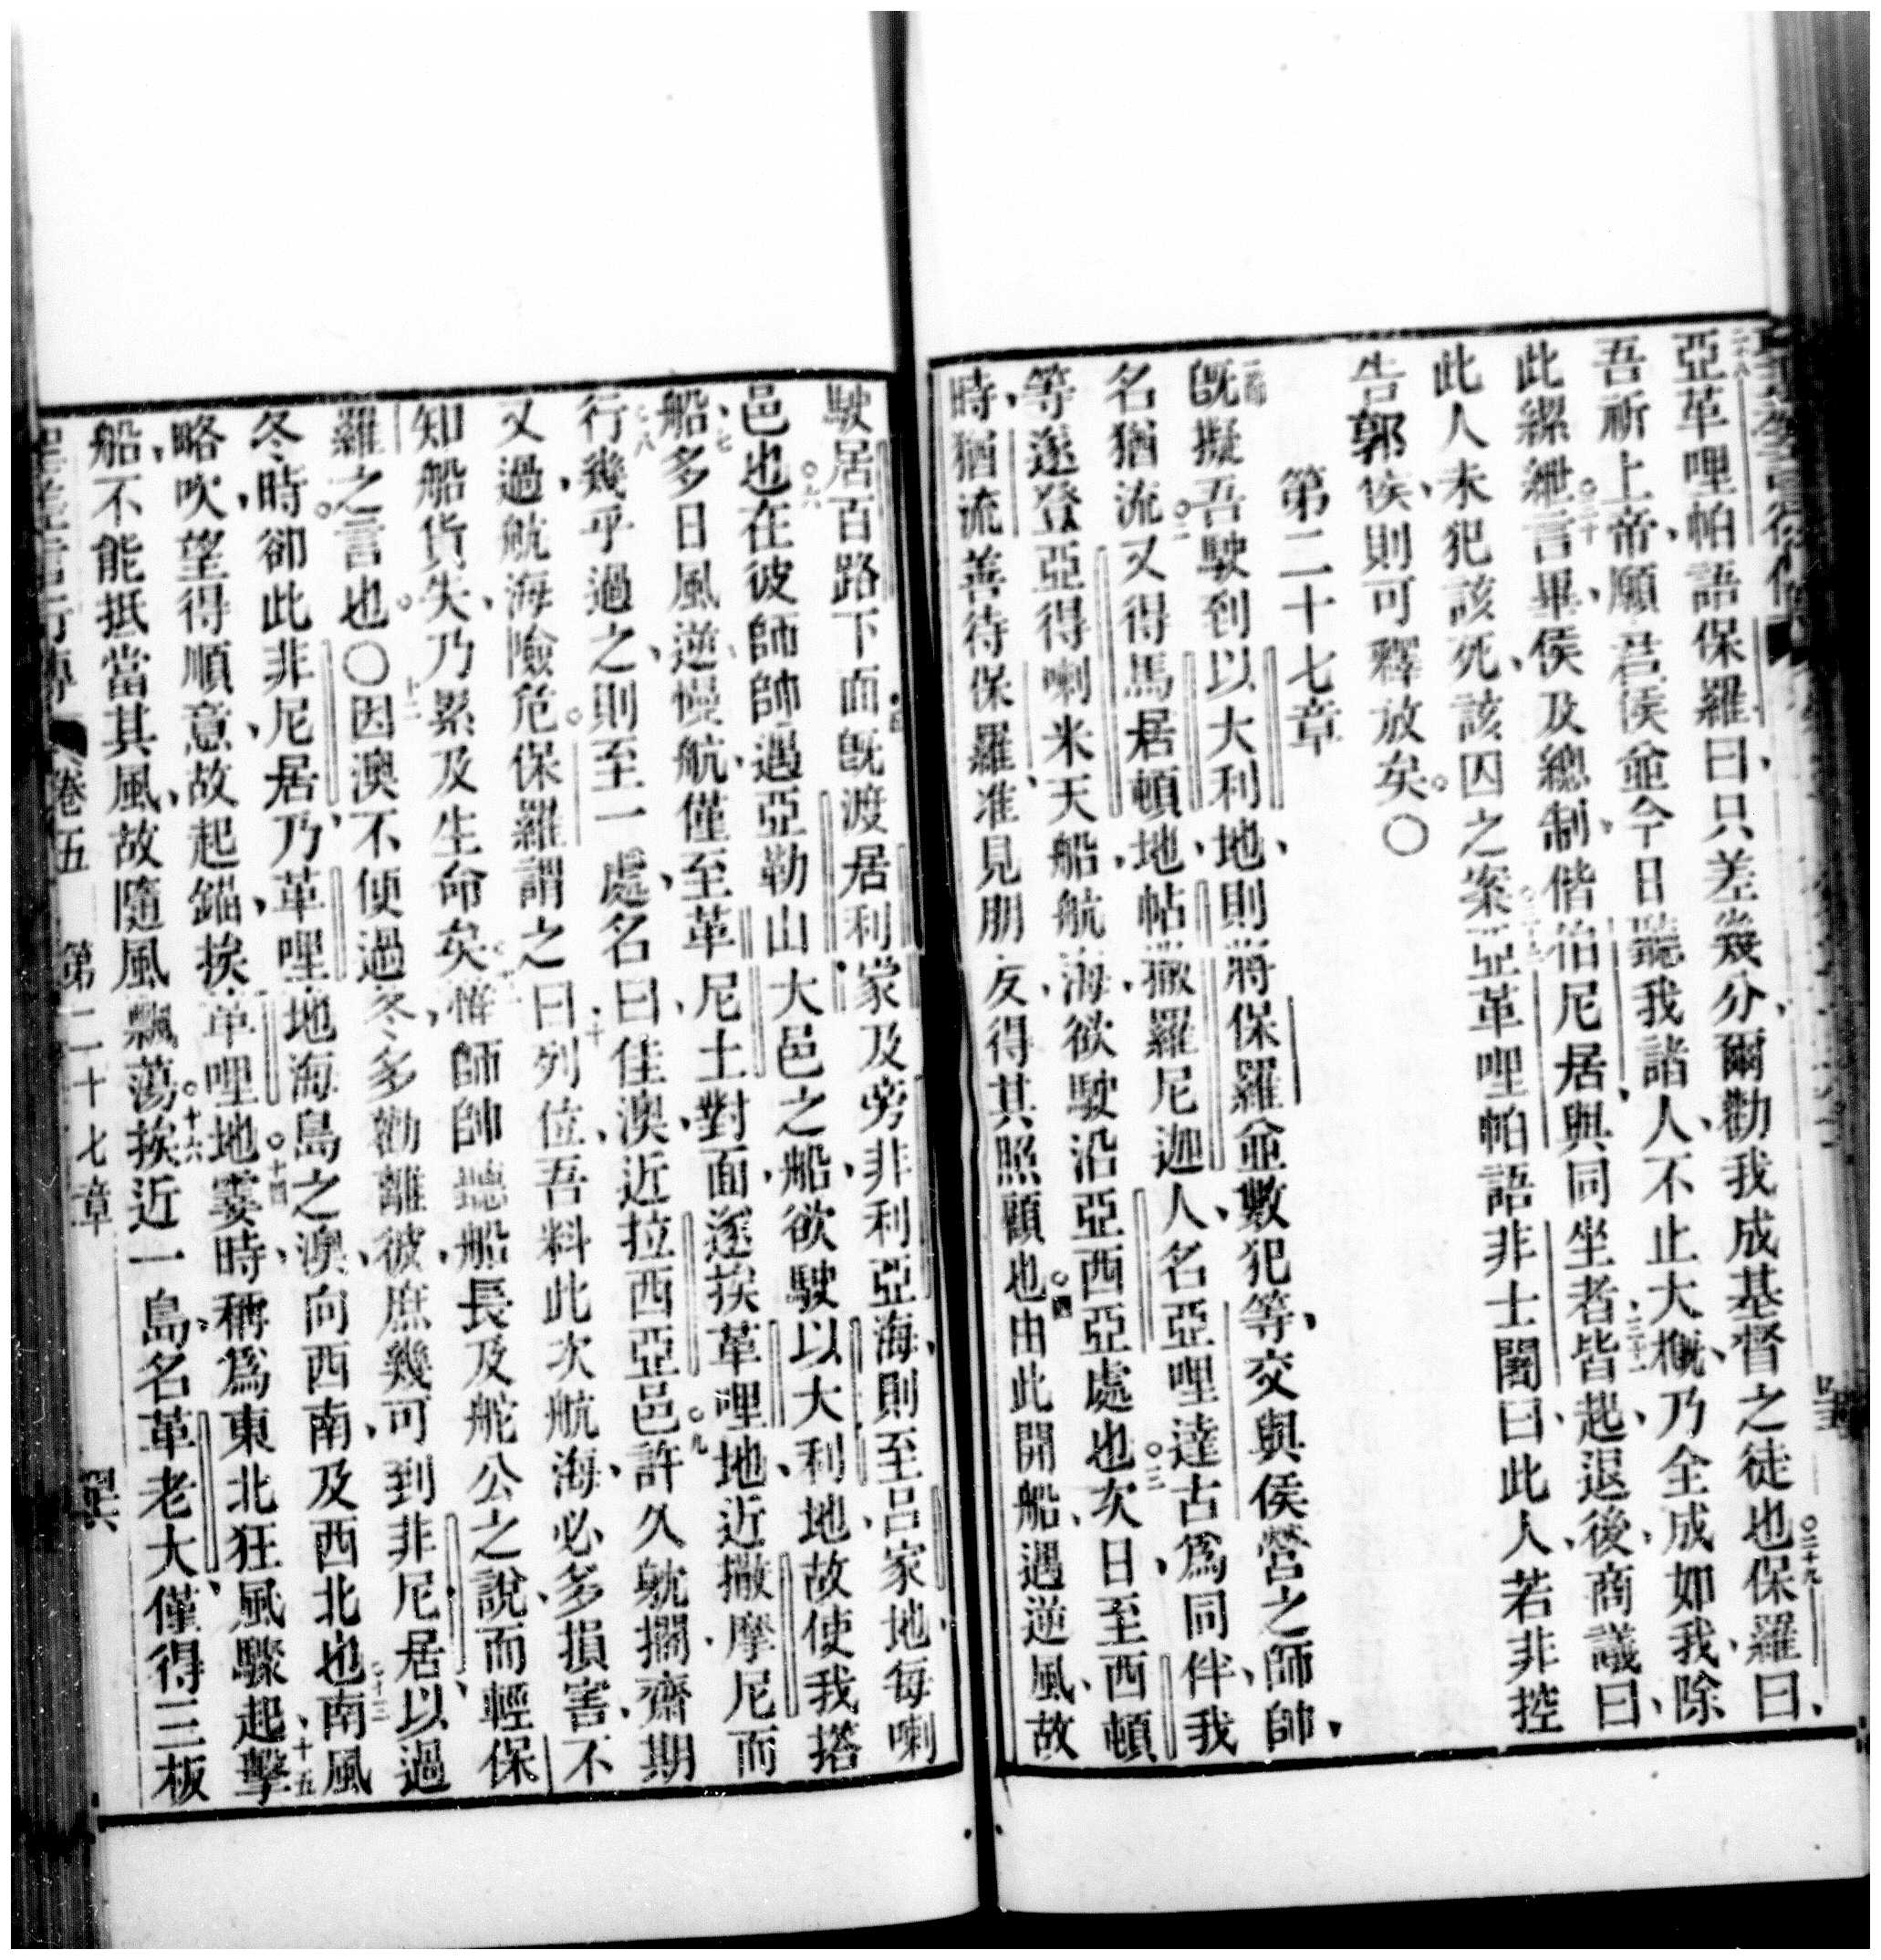 亞革哩帕語保羅曰、只差幾分、爾勸我成基督之徒也○二十九保羅曰、
吾祈上帝、願君侯並今日聽我諸人、不止大槪、乃全成如我、除
此縲紲○三十言畢、侯及總制、偕伯尼居、與同坐者皆起、三十一退後、商議曰、
此人未犯該死、該囚之案○三十二亞革哩帕語非士闍曰、此人、若非控
告郭侯、則可釋放矣○
第二十七章
旣擬吾駛到以大利地、則將保羅並數犯等、交與侯營之師帥、
名猶流○二又得馬居頓地、帖撒羅尼迦人、名亞哩達古爲同伴、我
等遂登亞得喇米天船、航海、欲駛沿亞西亞處也○三次日、至西頓
時、猶流善待保羅、准見朋友、得其照顧也○四由此開船、遇逆風、故
駛居百路下面○五旣渡居利家、及旁非利亞海、則至呂家地每喇
邑也○六在彼師帥遇亞勒山大邑之船、欲駛以大利地、故使我搭
船、七多日風逆、慢航、僅至革尼土對面、遂挨革哩地、近撒摩尼而
行、八幾乎過之、則至一處、名曰佳澳、近拉西亞邑○九許久躭擱、齋期
又過、航海險危○保羅謂之曰、十列位、吾料此次航海、必多損害、不
知船貨失、乃累及生命矣○十一惟師帥聽船長及舵公之說、而輕保
羅之言也○因澳不便過冬、多勸離彼、庶幾可到非尼居、以過
冬時○卻此非尼居、乃革哩地海島之澳、向西南、及西北也○十三南風
略吹、望得順意、故起錨、挨革哩地○十四霎時、稱爲東北狂風驟起、十五擊
船、不能抵當其風、故隨風飄蕩○十六挨近一島、名革老大、僅得三板
卷五 第二十七章